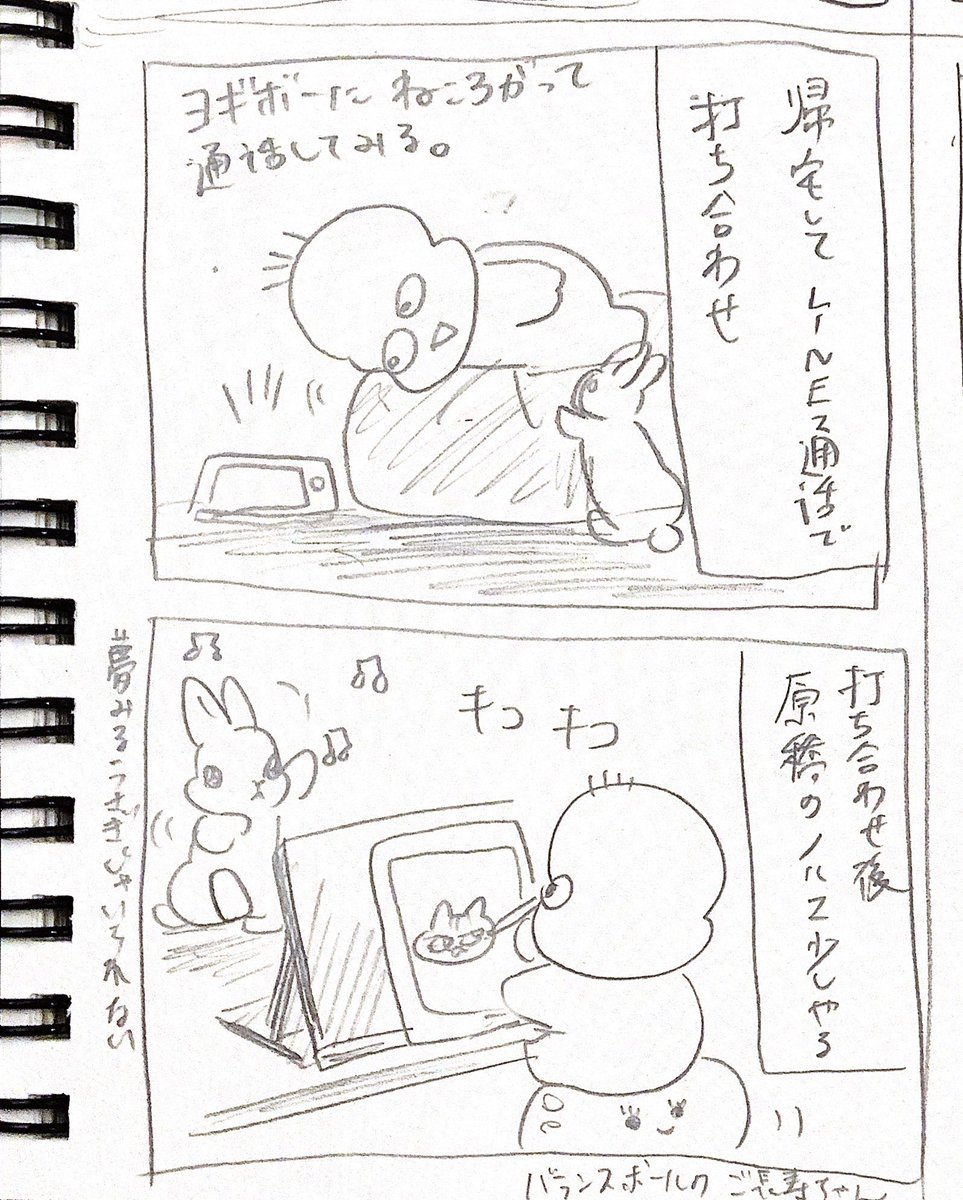 帰宅してLINE通話で
打ち合わせ
ヨギボーにねころがって
通話してみる。
打ち合わせ後
原稿の
少しやる
キコ キコ
夢みるうさぎじゃいられない
バランスボールの ご長寿ちゃん